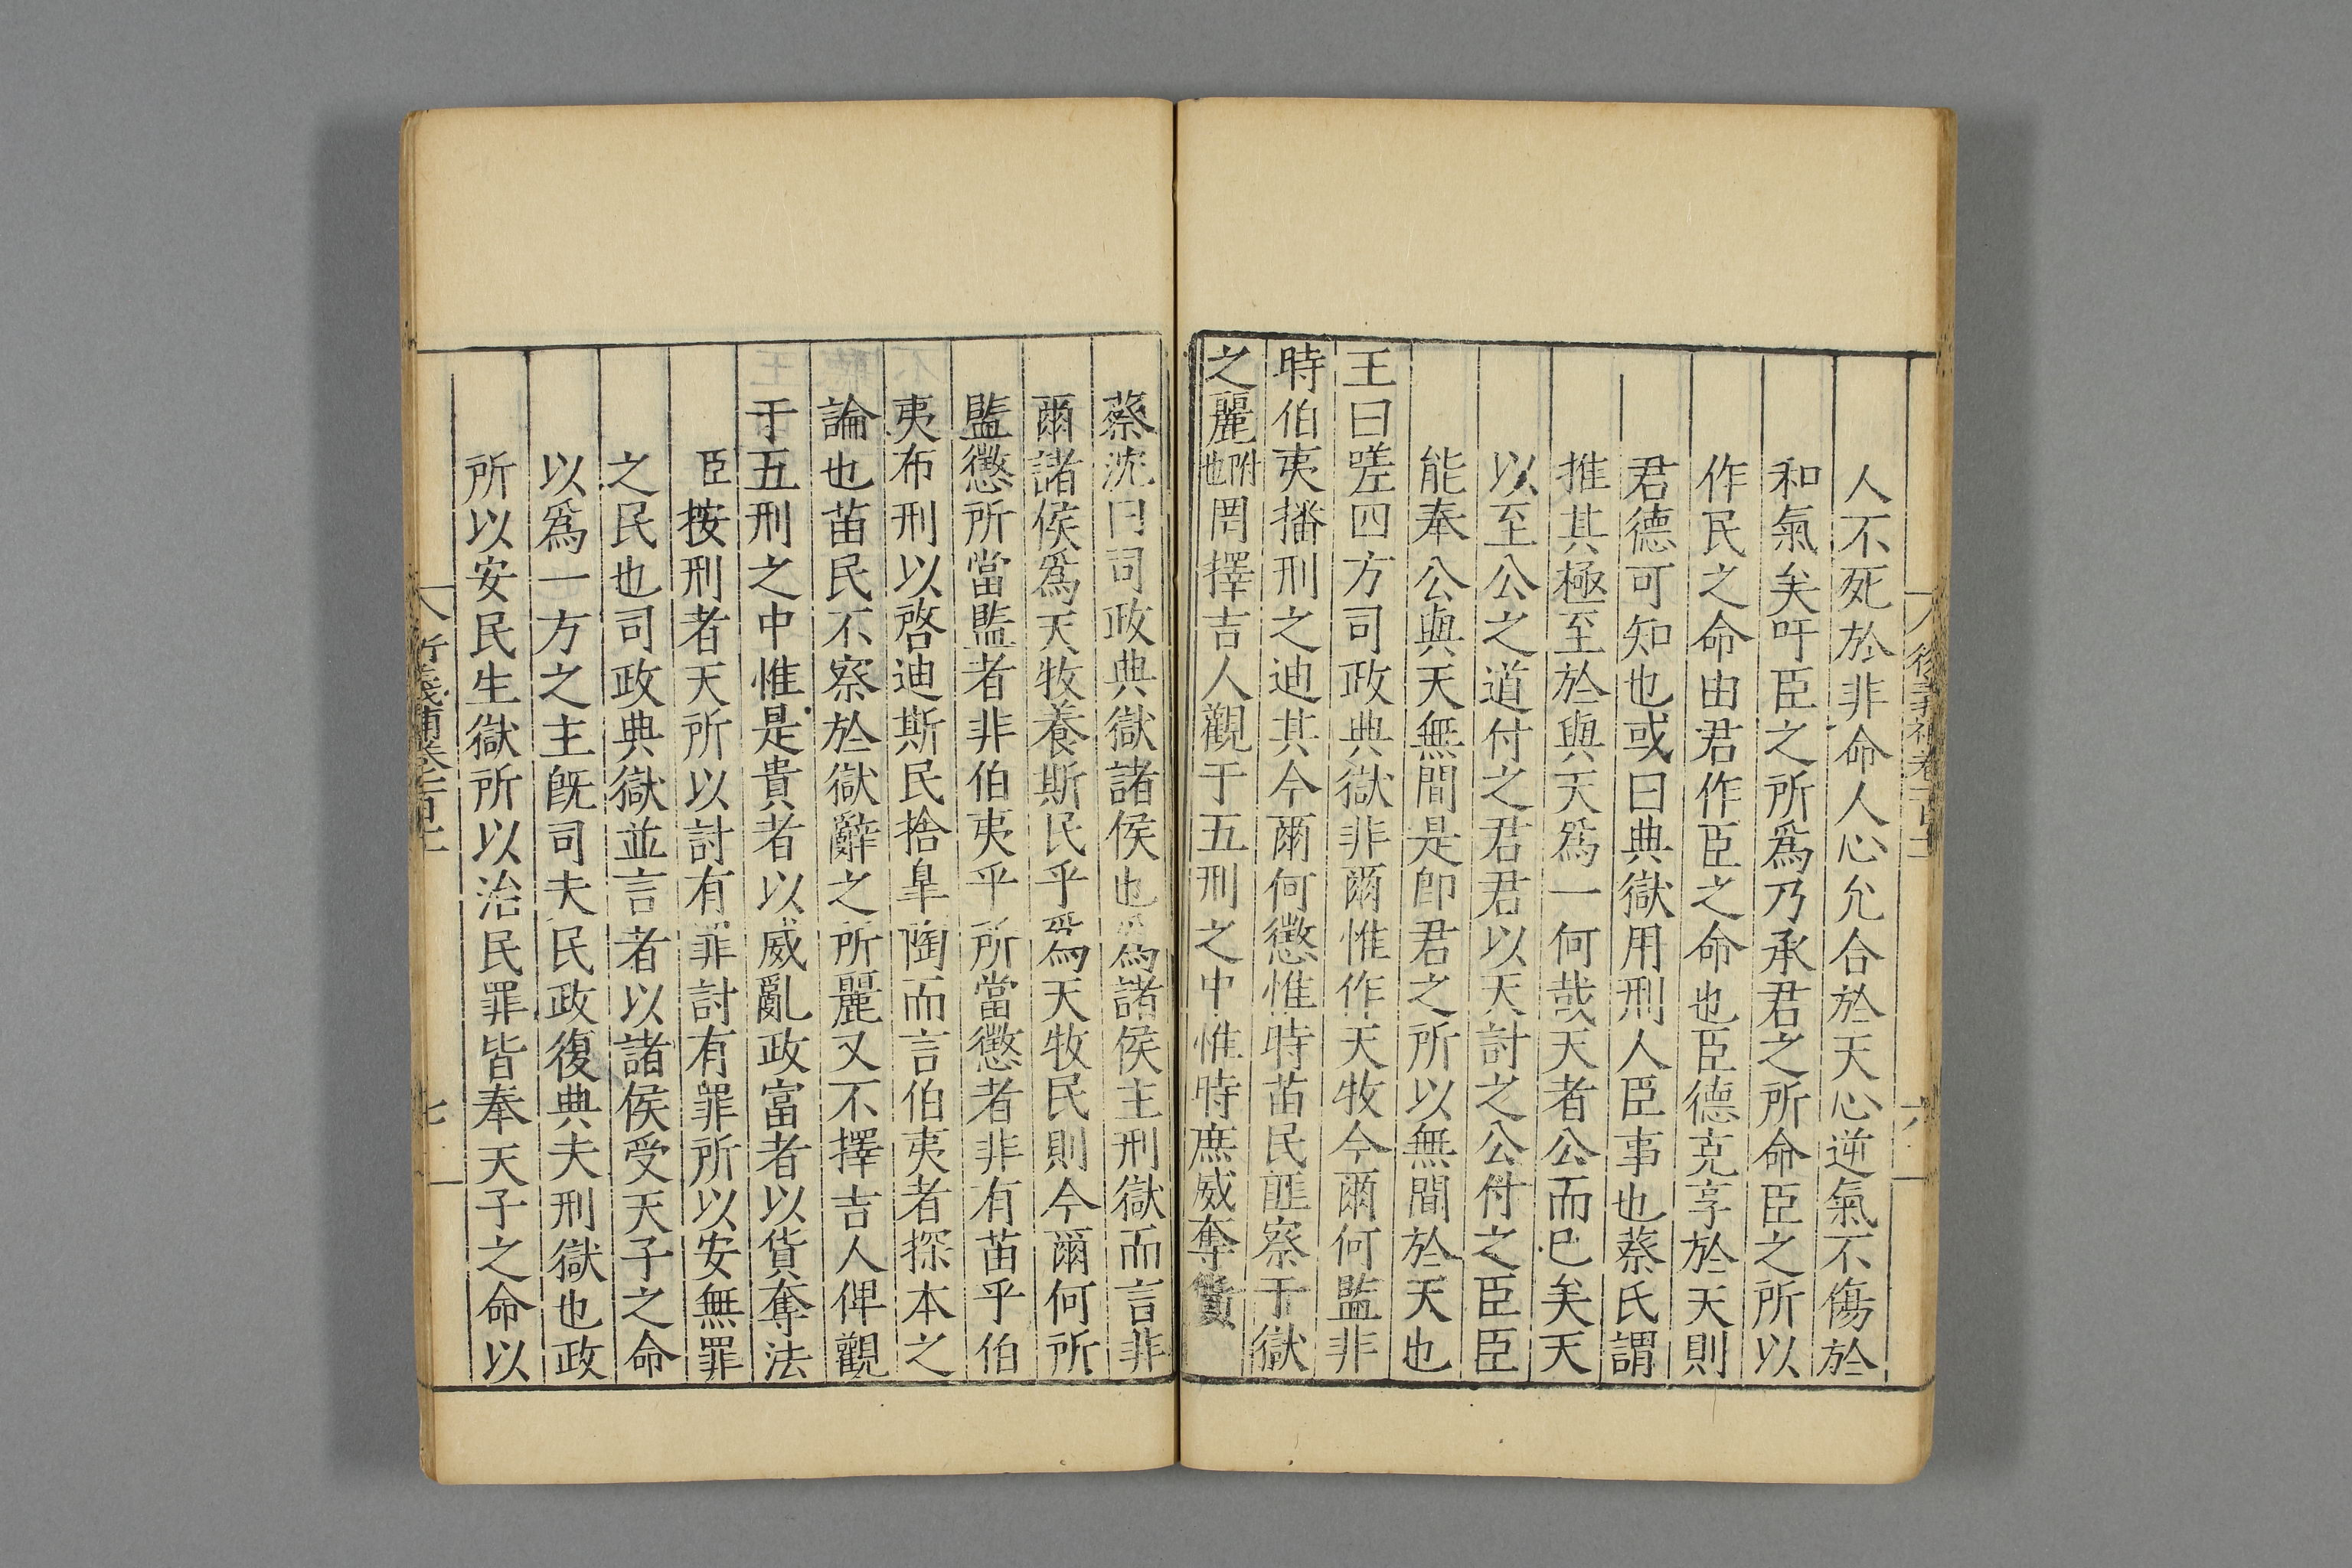 人不死於非命人心允合於天心逆氣不傷於
和氣矣吁臣之所爲乃承君之所命臣之所以
作民之命由君作臣之命也臣德克享於天則
君德可知也或曰典獄用刑人臣事也蔡氏謂
推其極至於與天爲一何哉天者公而已矣天
以至公之道付之君君以天討之公付之臣臣
能奉公與天無間是卽君之所以無間於天也
王曰嗟四方司政典獄非爾惟作天牧今爾何監非
時伯夷播刑之迪其今爾何懲惟時苗民匪察于獄
之麗附也罔擇吉人觀于五刑之中惟時庶威奪貨
蔡沈曰司政典獄諸侯也爲諸侯主刑獄而言非
爾諸侯爲天牧養斯民乎爲天牧民則今爾何所
監懲所當監者非伯夷乎所當懲者非有苗乎伯
夷布刑以啓迪斯民捨臯陶而言伯夷者探本之
論也苗民不察於獄辭之所麗又不擇吉人俾觀
于五刑之中惟是貴者以威亂政富者以貨奪法
臣按刑者天所以討有罪討有罪所以安無罪
之民也司政典獄並言者以諸侯受天子之命
以爲一方之主旣司夫民政復典夫刑獄也政
所以安民生獄所以治民罪皆奉天子之命以